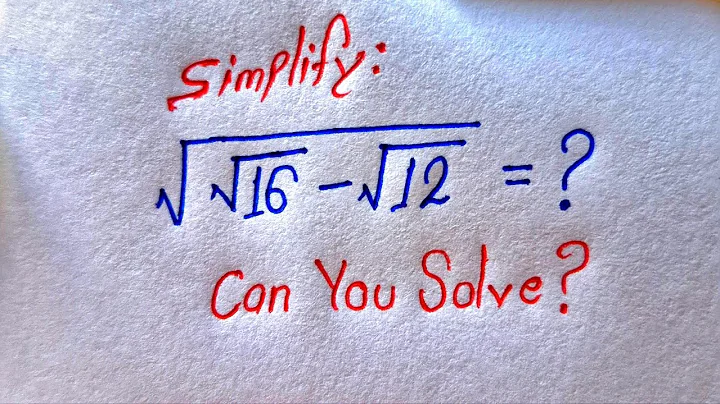 Simplify:
√(√16 - √12) = ?
Can You Solve?